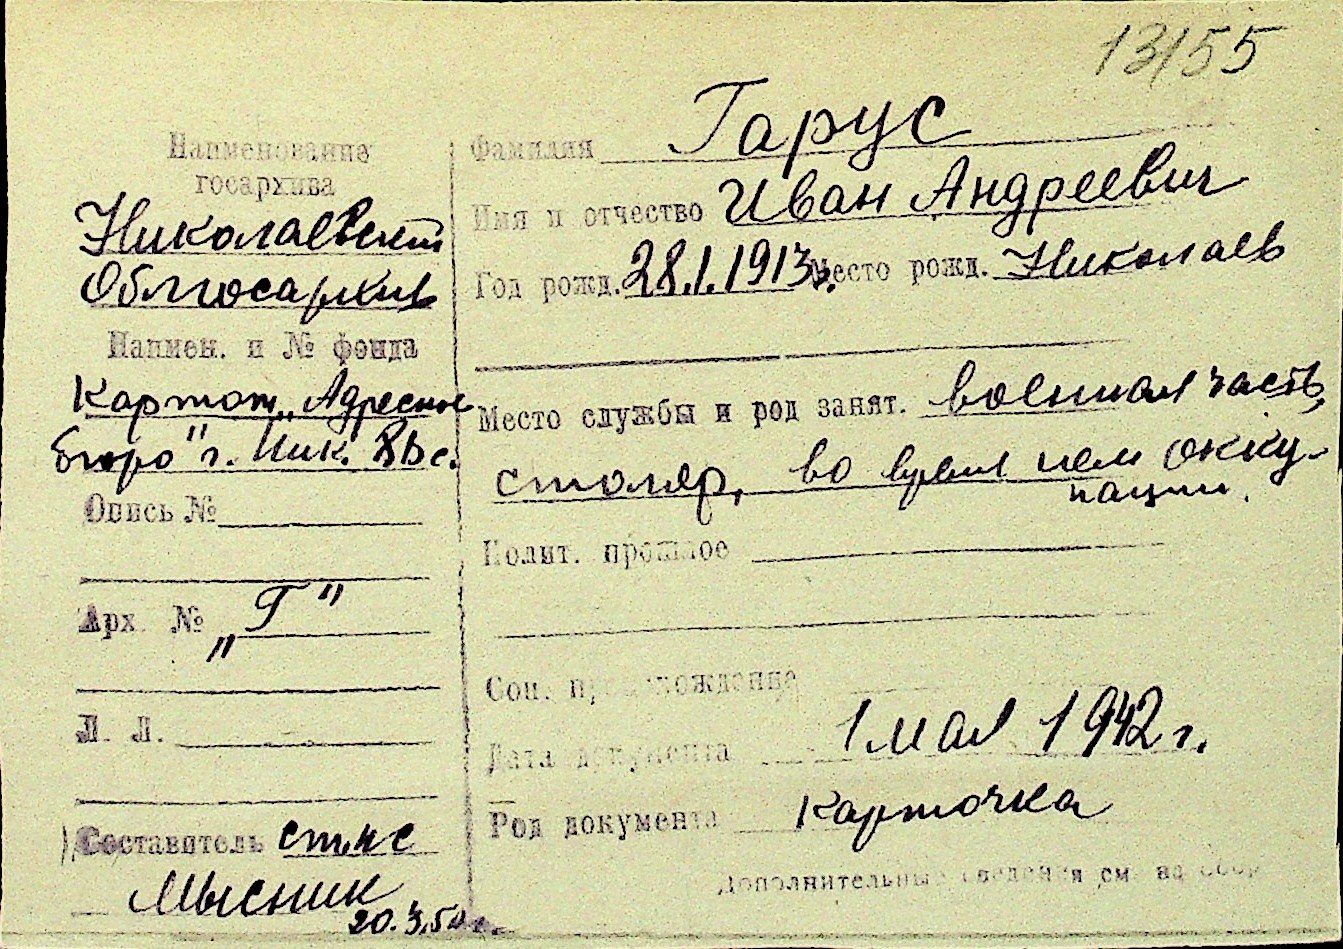 13/55
Наименование
госархива
Николаевский
Облгосархив
Наимен. и № фонда
Картот. „Адресное
бюро" г. Ник.
Опись №
Арх. № „Г"
Л. Л.
Составитель ст. нс
Мысник
Фамилия Гарус
Имя и отчество Иван Андреевич
Год рожд. 28.1.1913г. Место рожд. Николаев
Место службы и род занят. военная часть,
столяр, во время нем окку-
пации.
Полит. прошлое
Соц. происхождение
Дата документа 1 мая 1942 г.
Род документа карточка
Дополнительные сведения см. на обор.